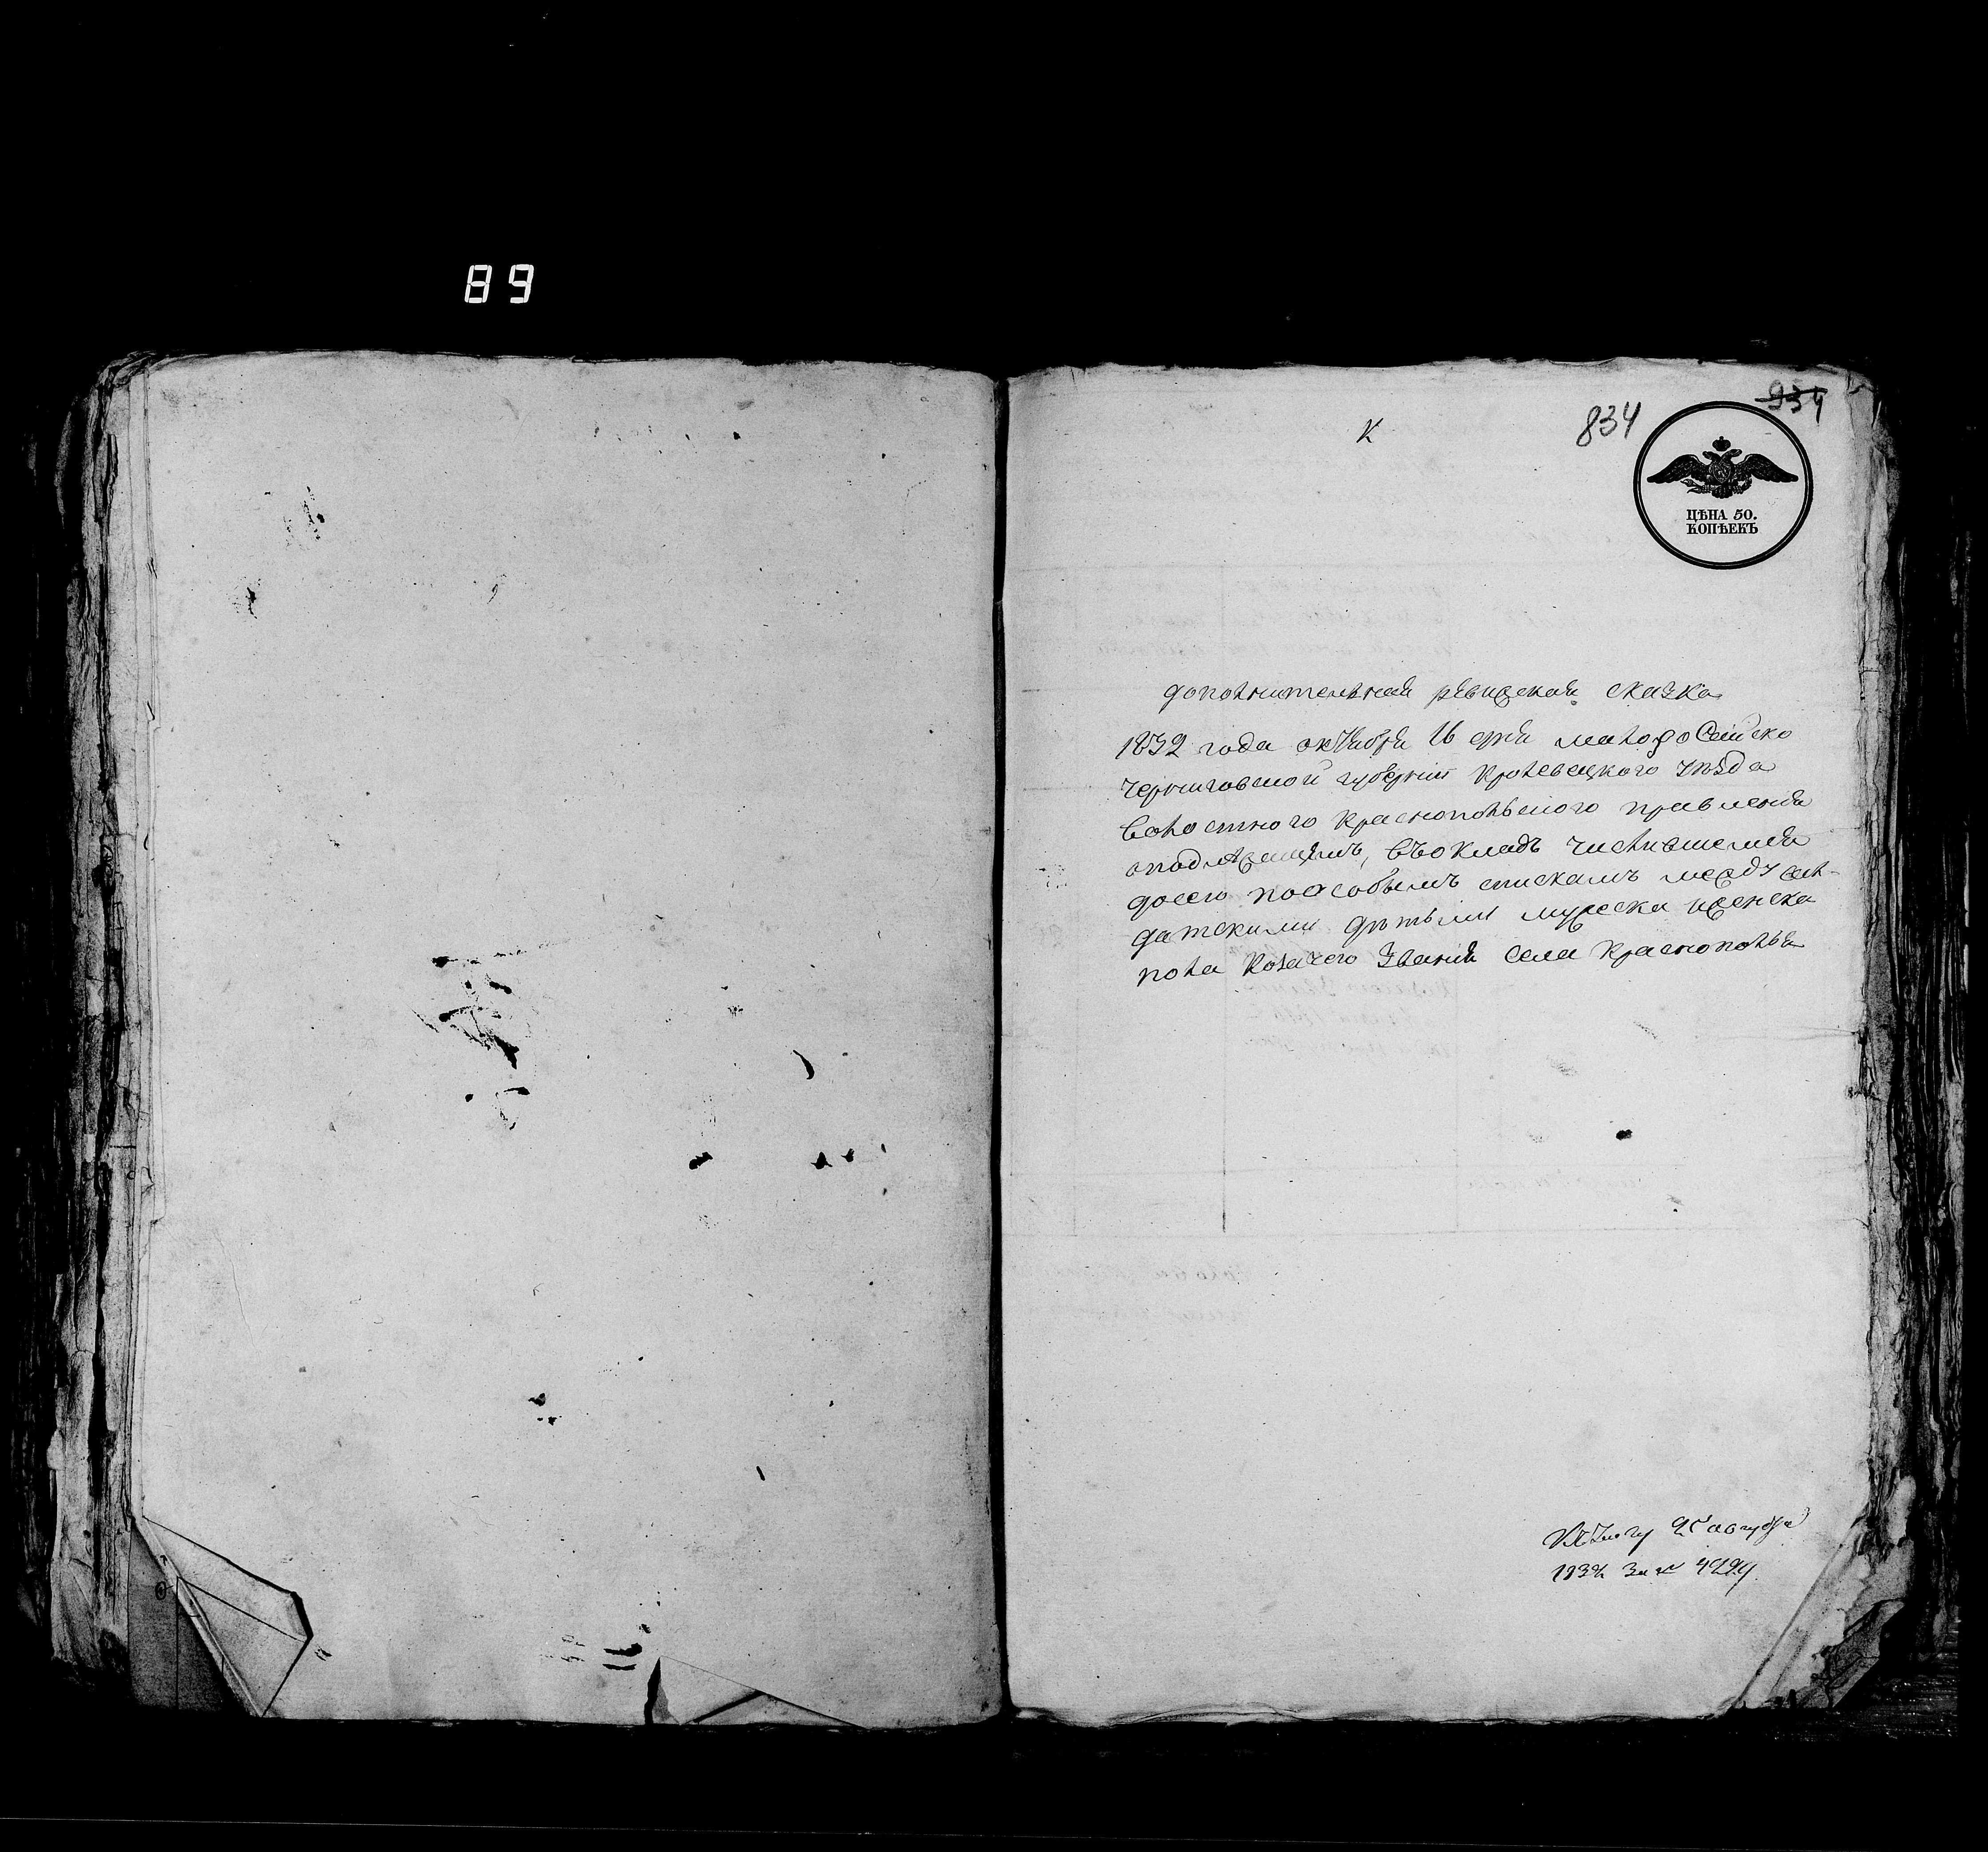 89
К
834
934
ЦѢНА 50.
КОПѢЕКЪ
дополнительная ревизская сказка
1832 года октября 16 дня малоросейско
черниговской губернии кролевецкого уезда
волостного краснопольского правления
оподлежащемъ, въокладъ числившемся
досего поособымъ спискамъ между сол-
датскими дѣтьми мужеска иженска
пола козачего звания села краснополья
25
183 за № 4294